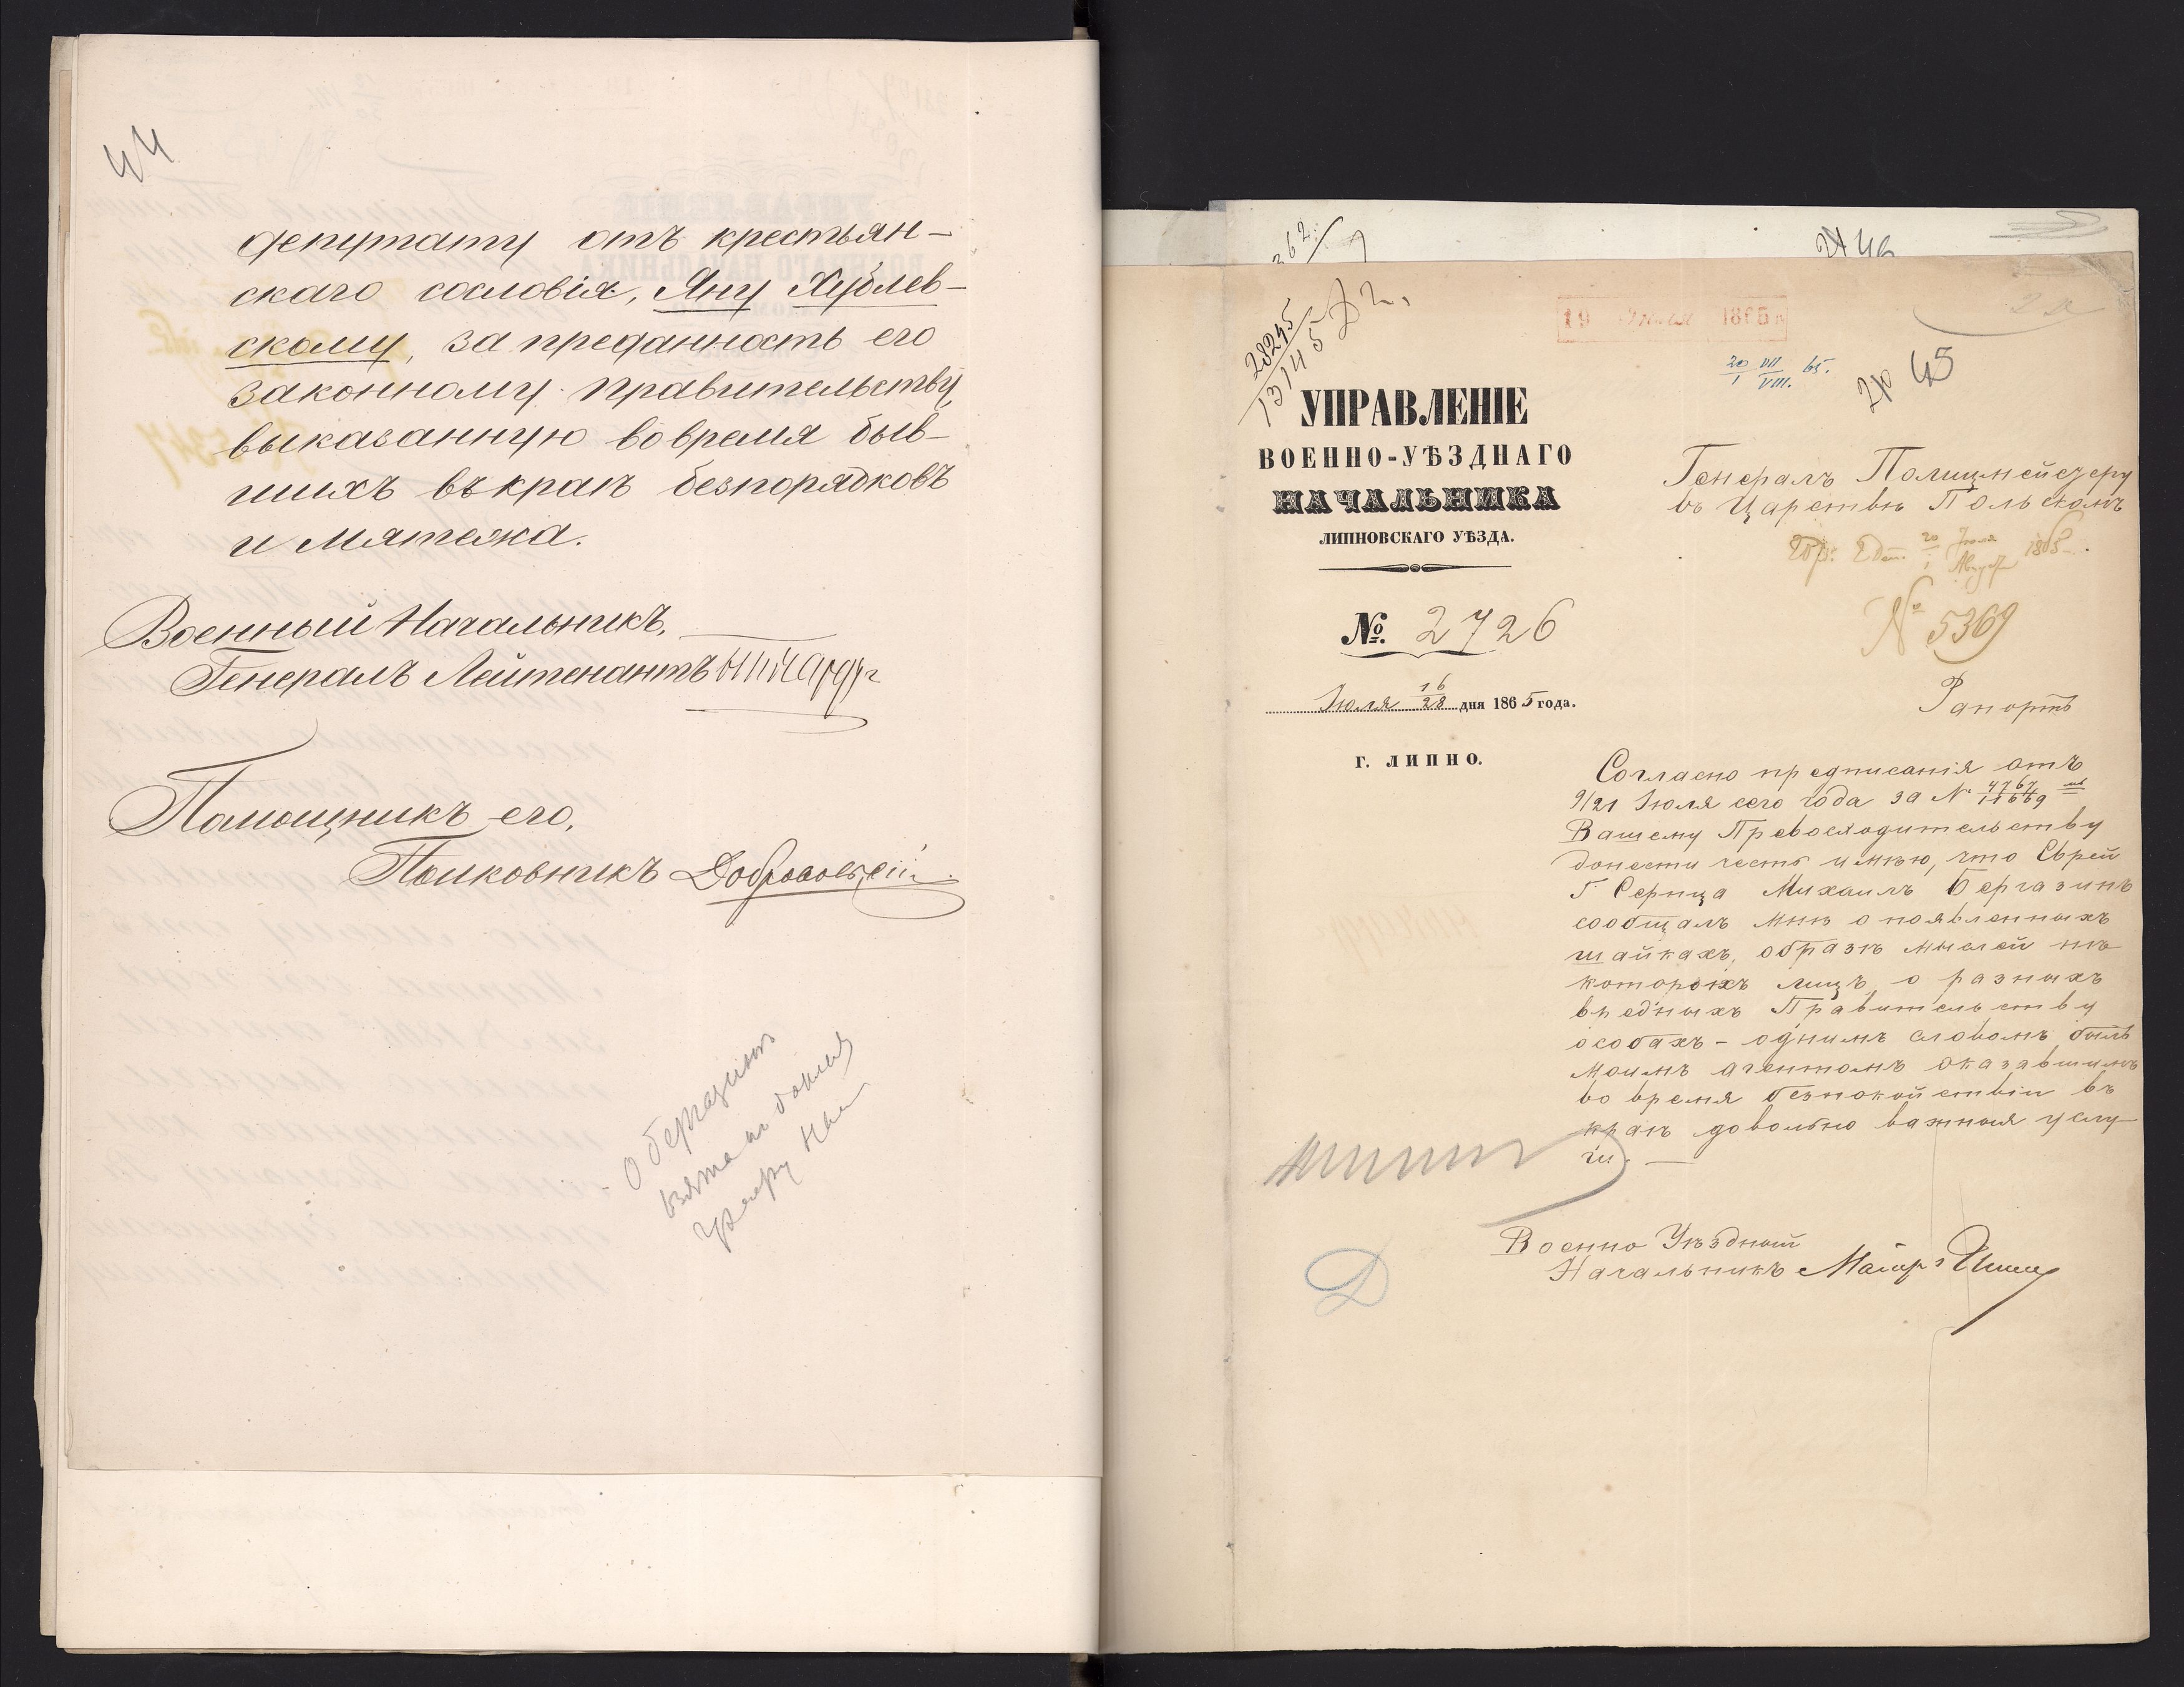 44
депутату отъ крестьян-
скаго сословія, Яну Хублев-
скому, за преданность его
законному правительству,
выказанную вовремя быв-
шихъ въ краѣ безпорядковъ
и мятежа.
Военный Начальникъ,
Генералъ Лейтенантъ
Помощникъ его,
Полковникъ
О Бергазинѣ
362
28245
13145
19 Іюля 1865
20 VII 65.
1 VIII.
45
УПРАВЛЕНІЕ
ВОЕННО-УѢЗДНАГО
НАЧАЛЬНИКА
ЛИПНОВСКАГО УѢЗДА.
№. 2726
Іюля 16/28 дня 1865 года.
г. ЛИПНО.
Генералъ Полицмейстеру
въ Царствѣ Польскомъ
20 Іюля 1865
1 Август
№ 5369
Рапортъ
Согласно предписанія отъ
9/21 Іюля сего года за № 4767/11669
Вашему Превосходительству
донести честь имѣю, что Еврей
Г Серпца Михаилъ Бергазинъ
сообщалъ мнѣ о появленныхъ
шайкахъ, образѣ мыслей нѣ
которыхъ лицъ, о разныхъ
вредныхъ Правительству
особахъ - однимъ словомъ былъ
моимъ агентомъ оказавшимъ
во время безпокойствіи въ
краѣ довольно важныя услу
ги. —
Военно Уѣздный
Начальникъ Маіоръ